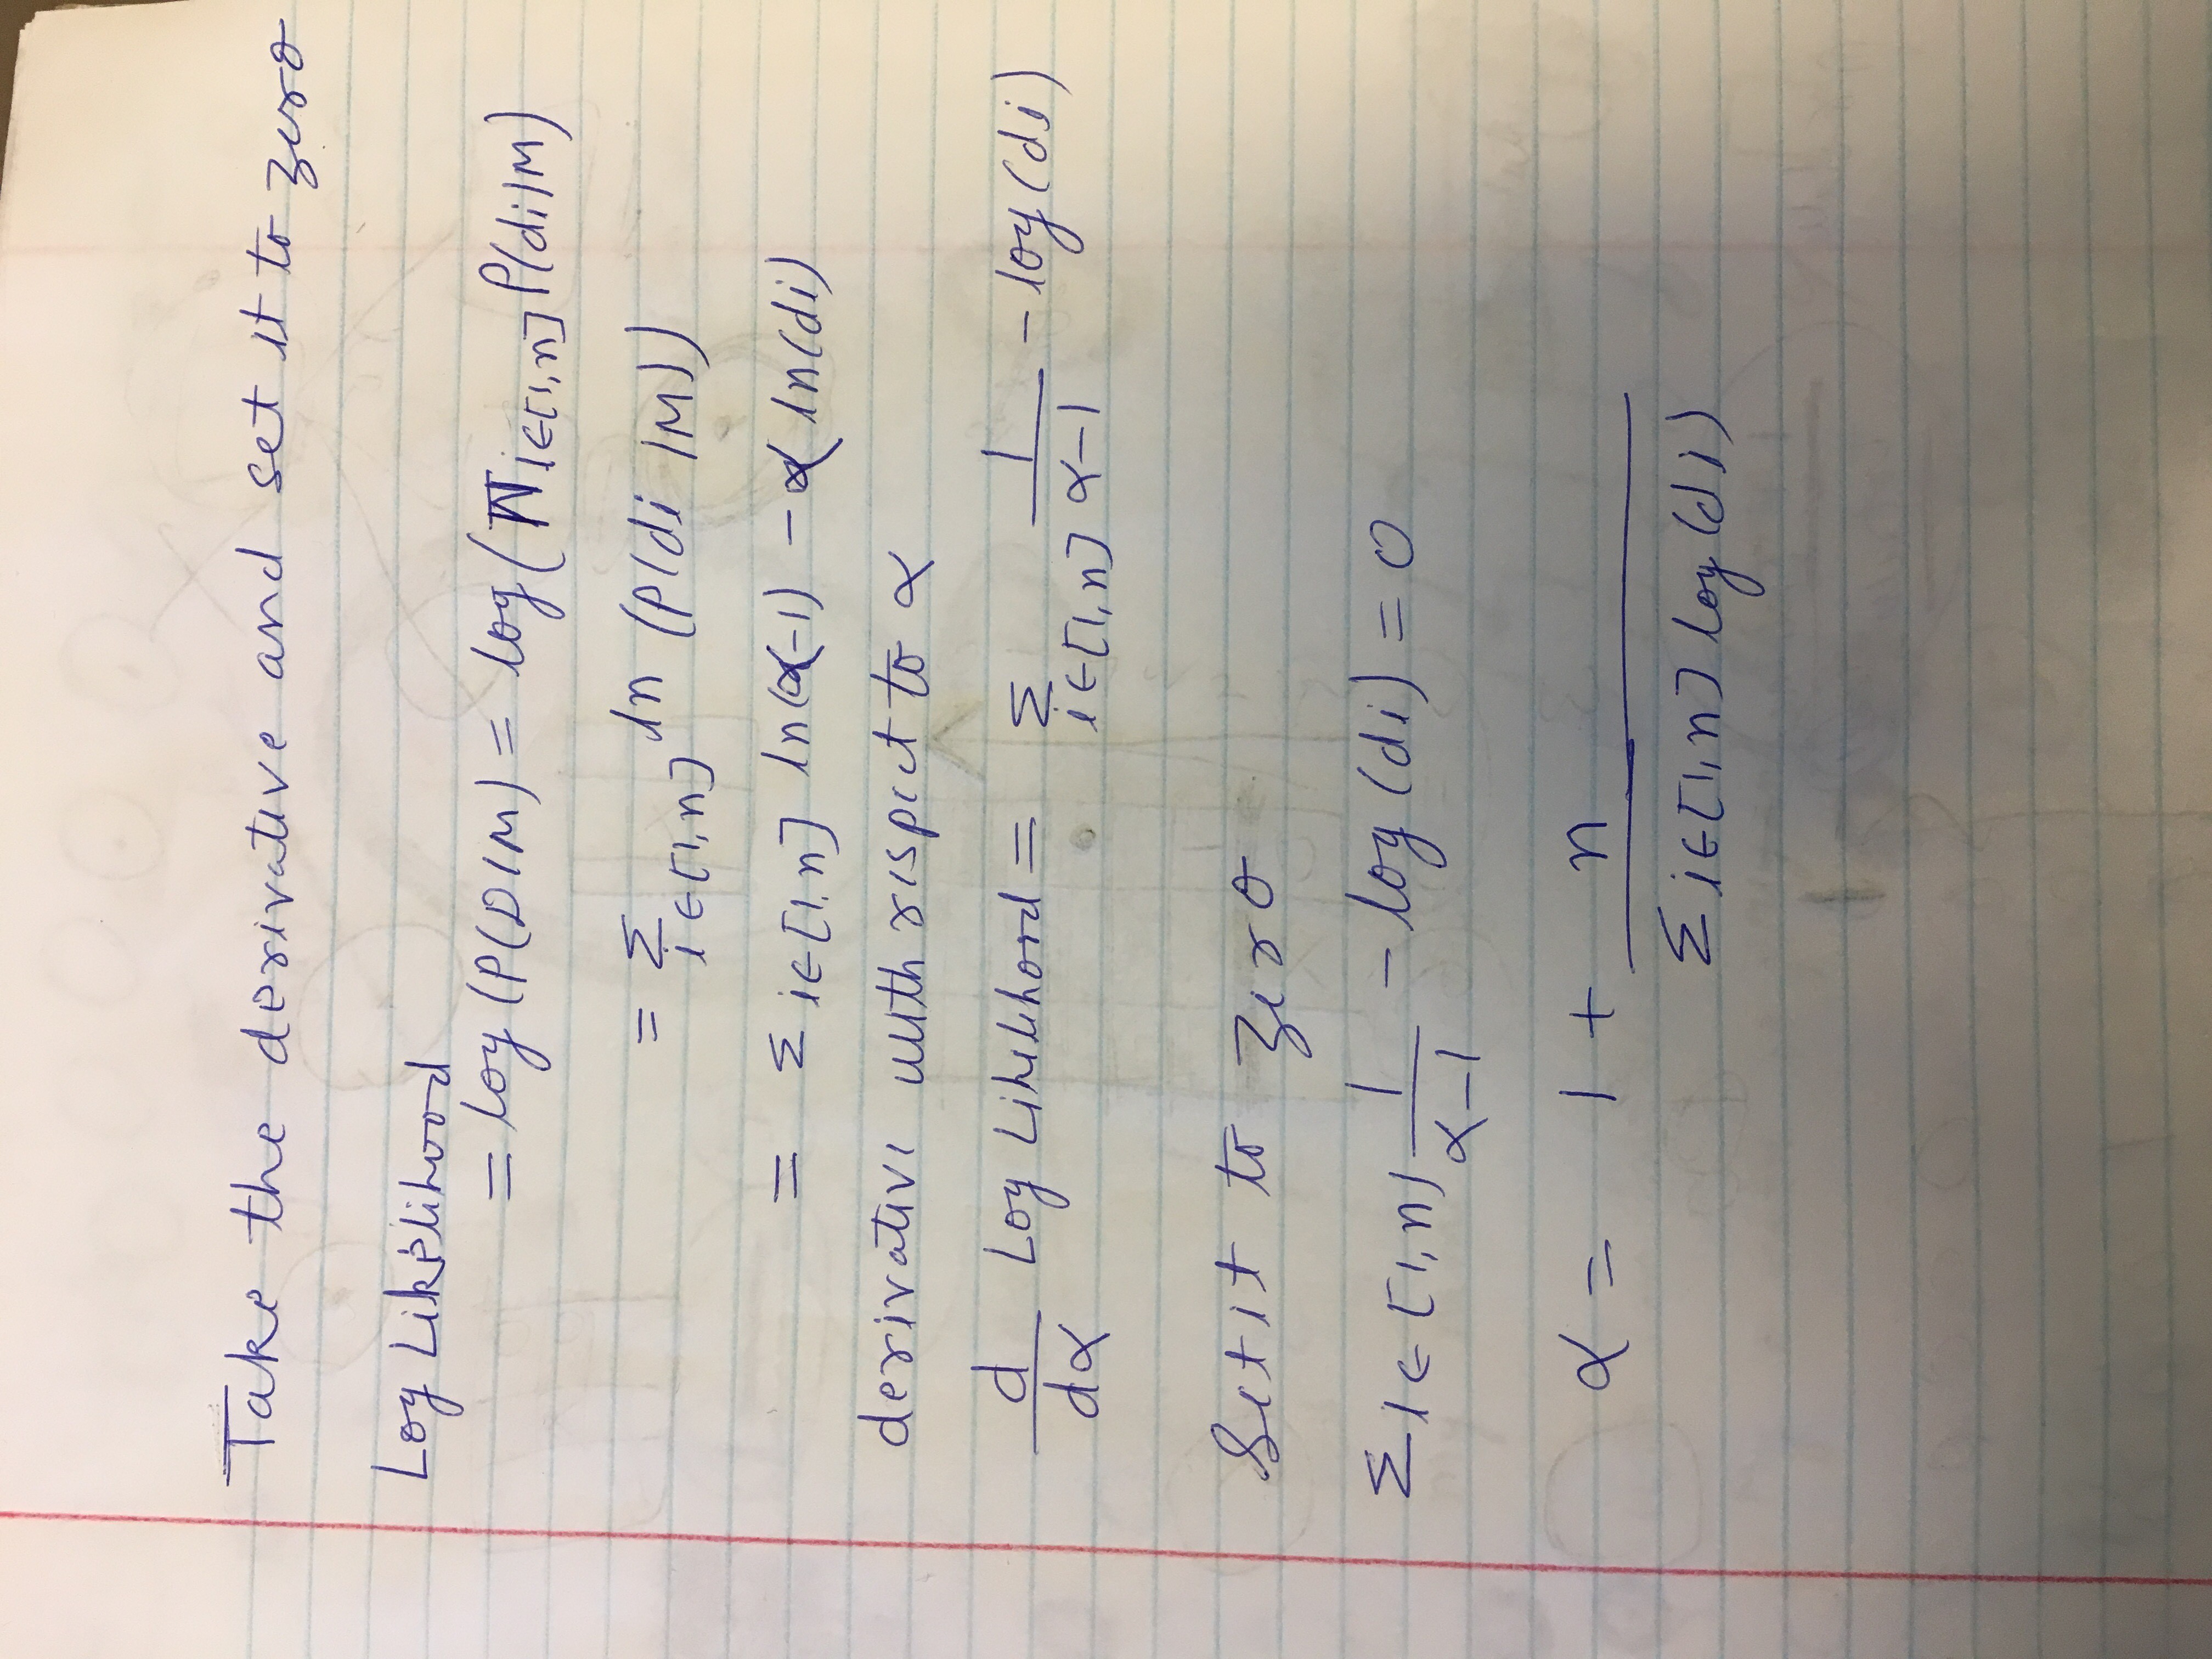 Take the derivative and set it to zero
Log Likelihood
= log(P(D|M) = log(∏i∈[1,n] P(di|M)
= Σ i∈[1,n] ln(P(di|M))
= Σ i∈[1,n] ln(α-1) - α ln(di)
derivative with respect to α
d/dα Log Likelihood = Σ i∈[1,n] 1/α-1 - log(di)
Set it to zero
Σ i∈[1,n] 1/α-1 - log(di) = 0
α = 1 + n / Σ i∈[1,n] log(di)